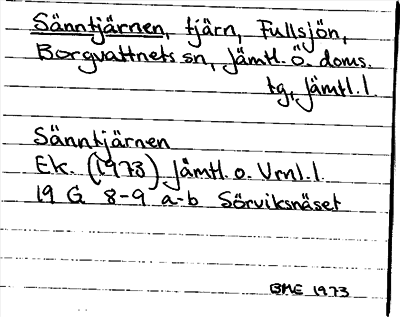 Sänntjärnen, tjärn, Fullsjön,
Borgvattnets sn, Jämtl. Ö. doms.
tg, Jämtl. l.
Sänntjärnen
Ek. (1973) Jämtl. o. Vrnl. l.
19 G 8-9 a-b Sörviksnäset
BME 1973